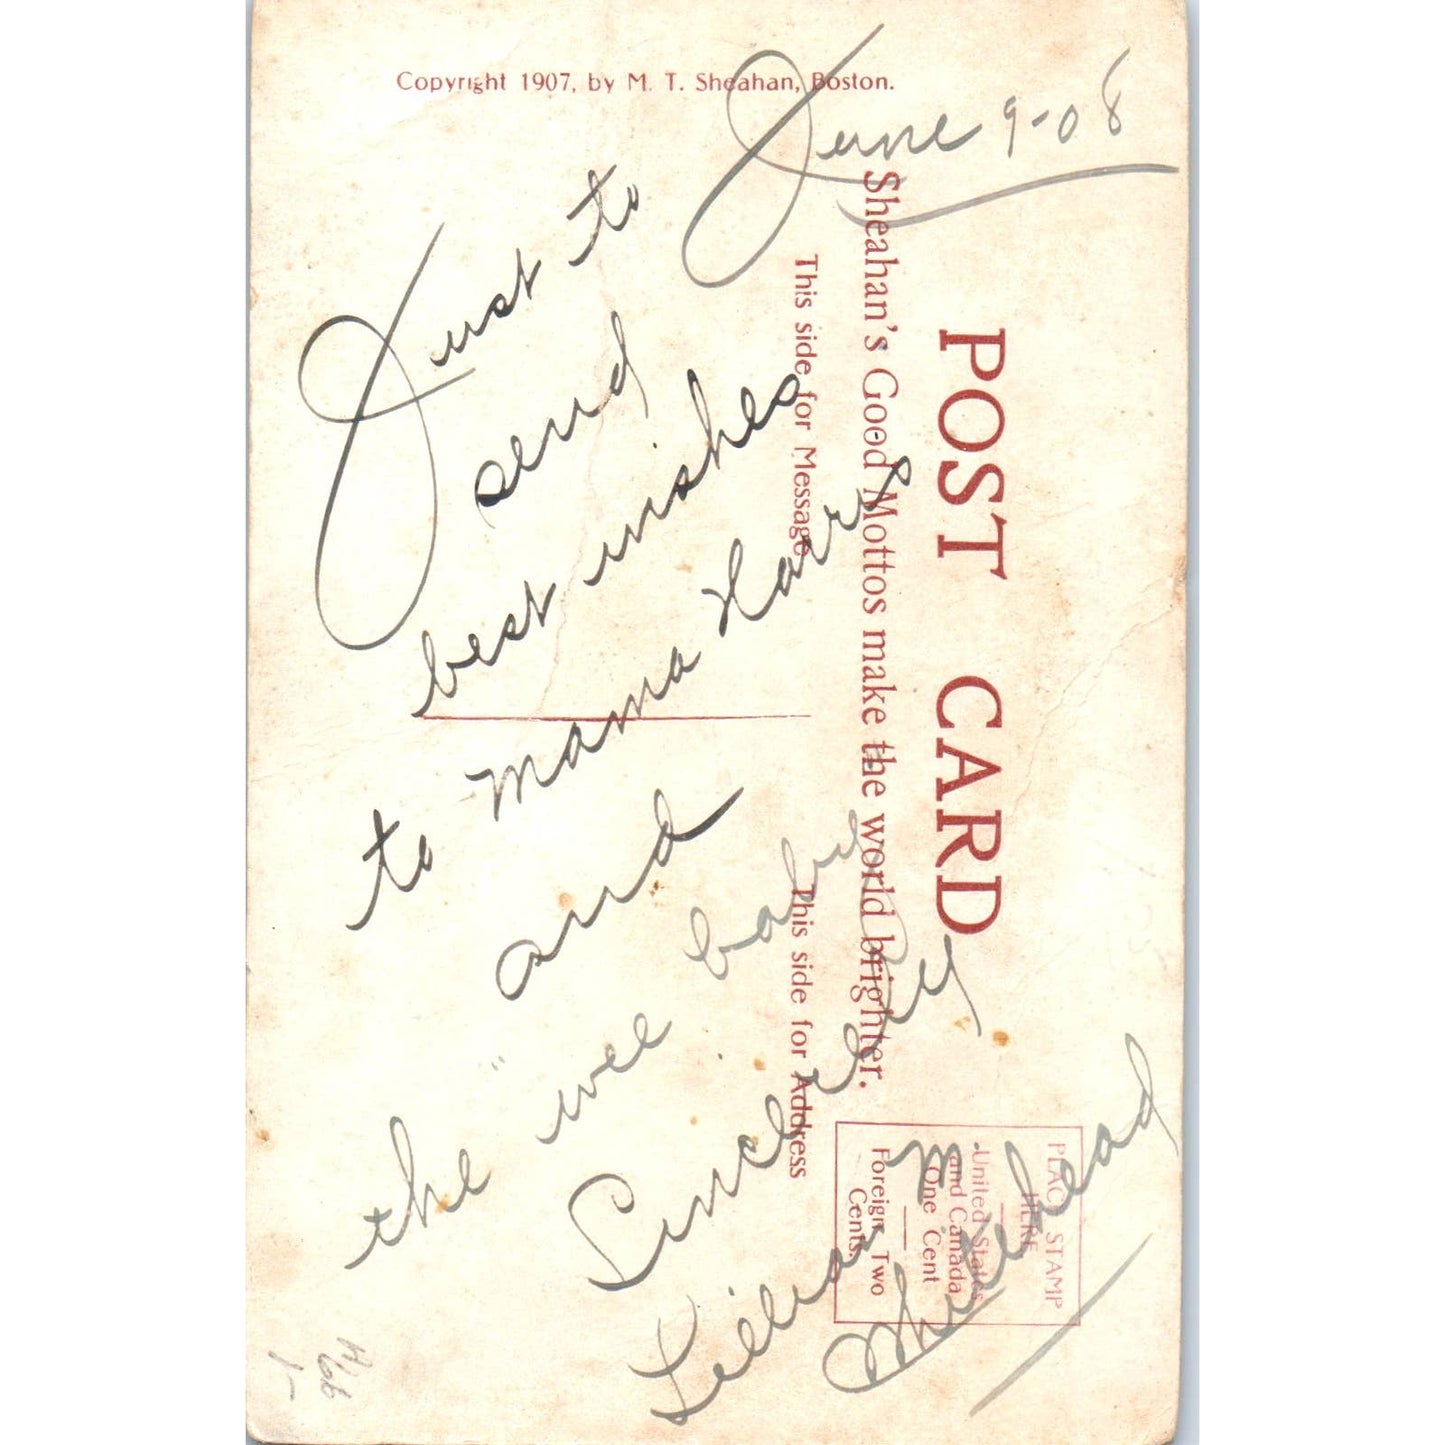 Copyright 1907, by M. T. Sheahan, Boston.
June 9-08
Just to
send
best wishes
to Mama Harris
and
the "wee baby
Sincerely
Lillian M
Whitehead
POST CARD
Sheahan's Good Mottos make the world brighter.
This side for Message
This side for Address
PLACE STAMP
HERE
United States
and Canada
One Cent
Foreign, Two
Cents.
1-